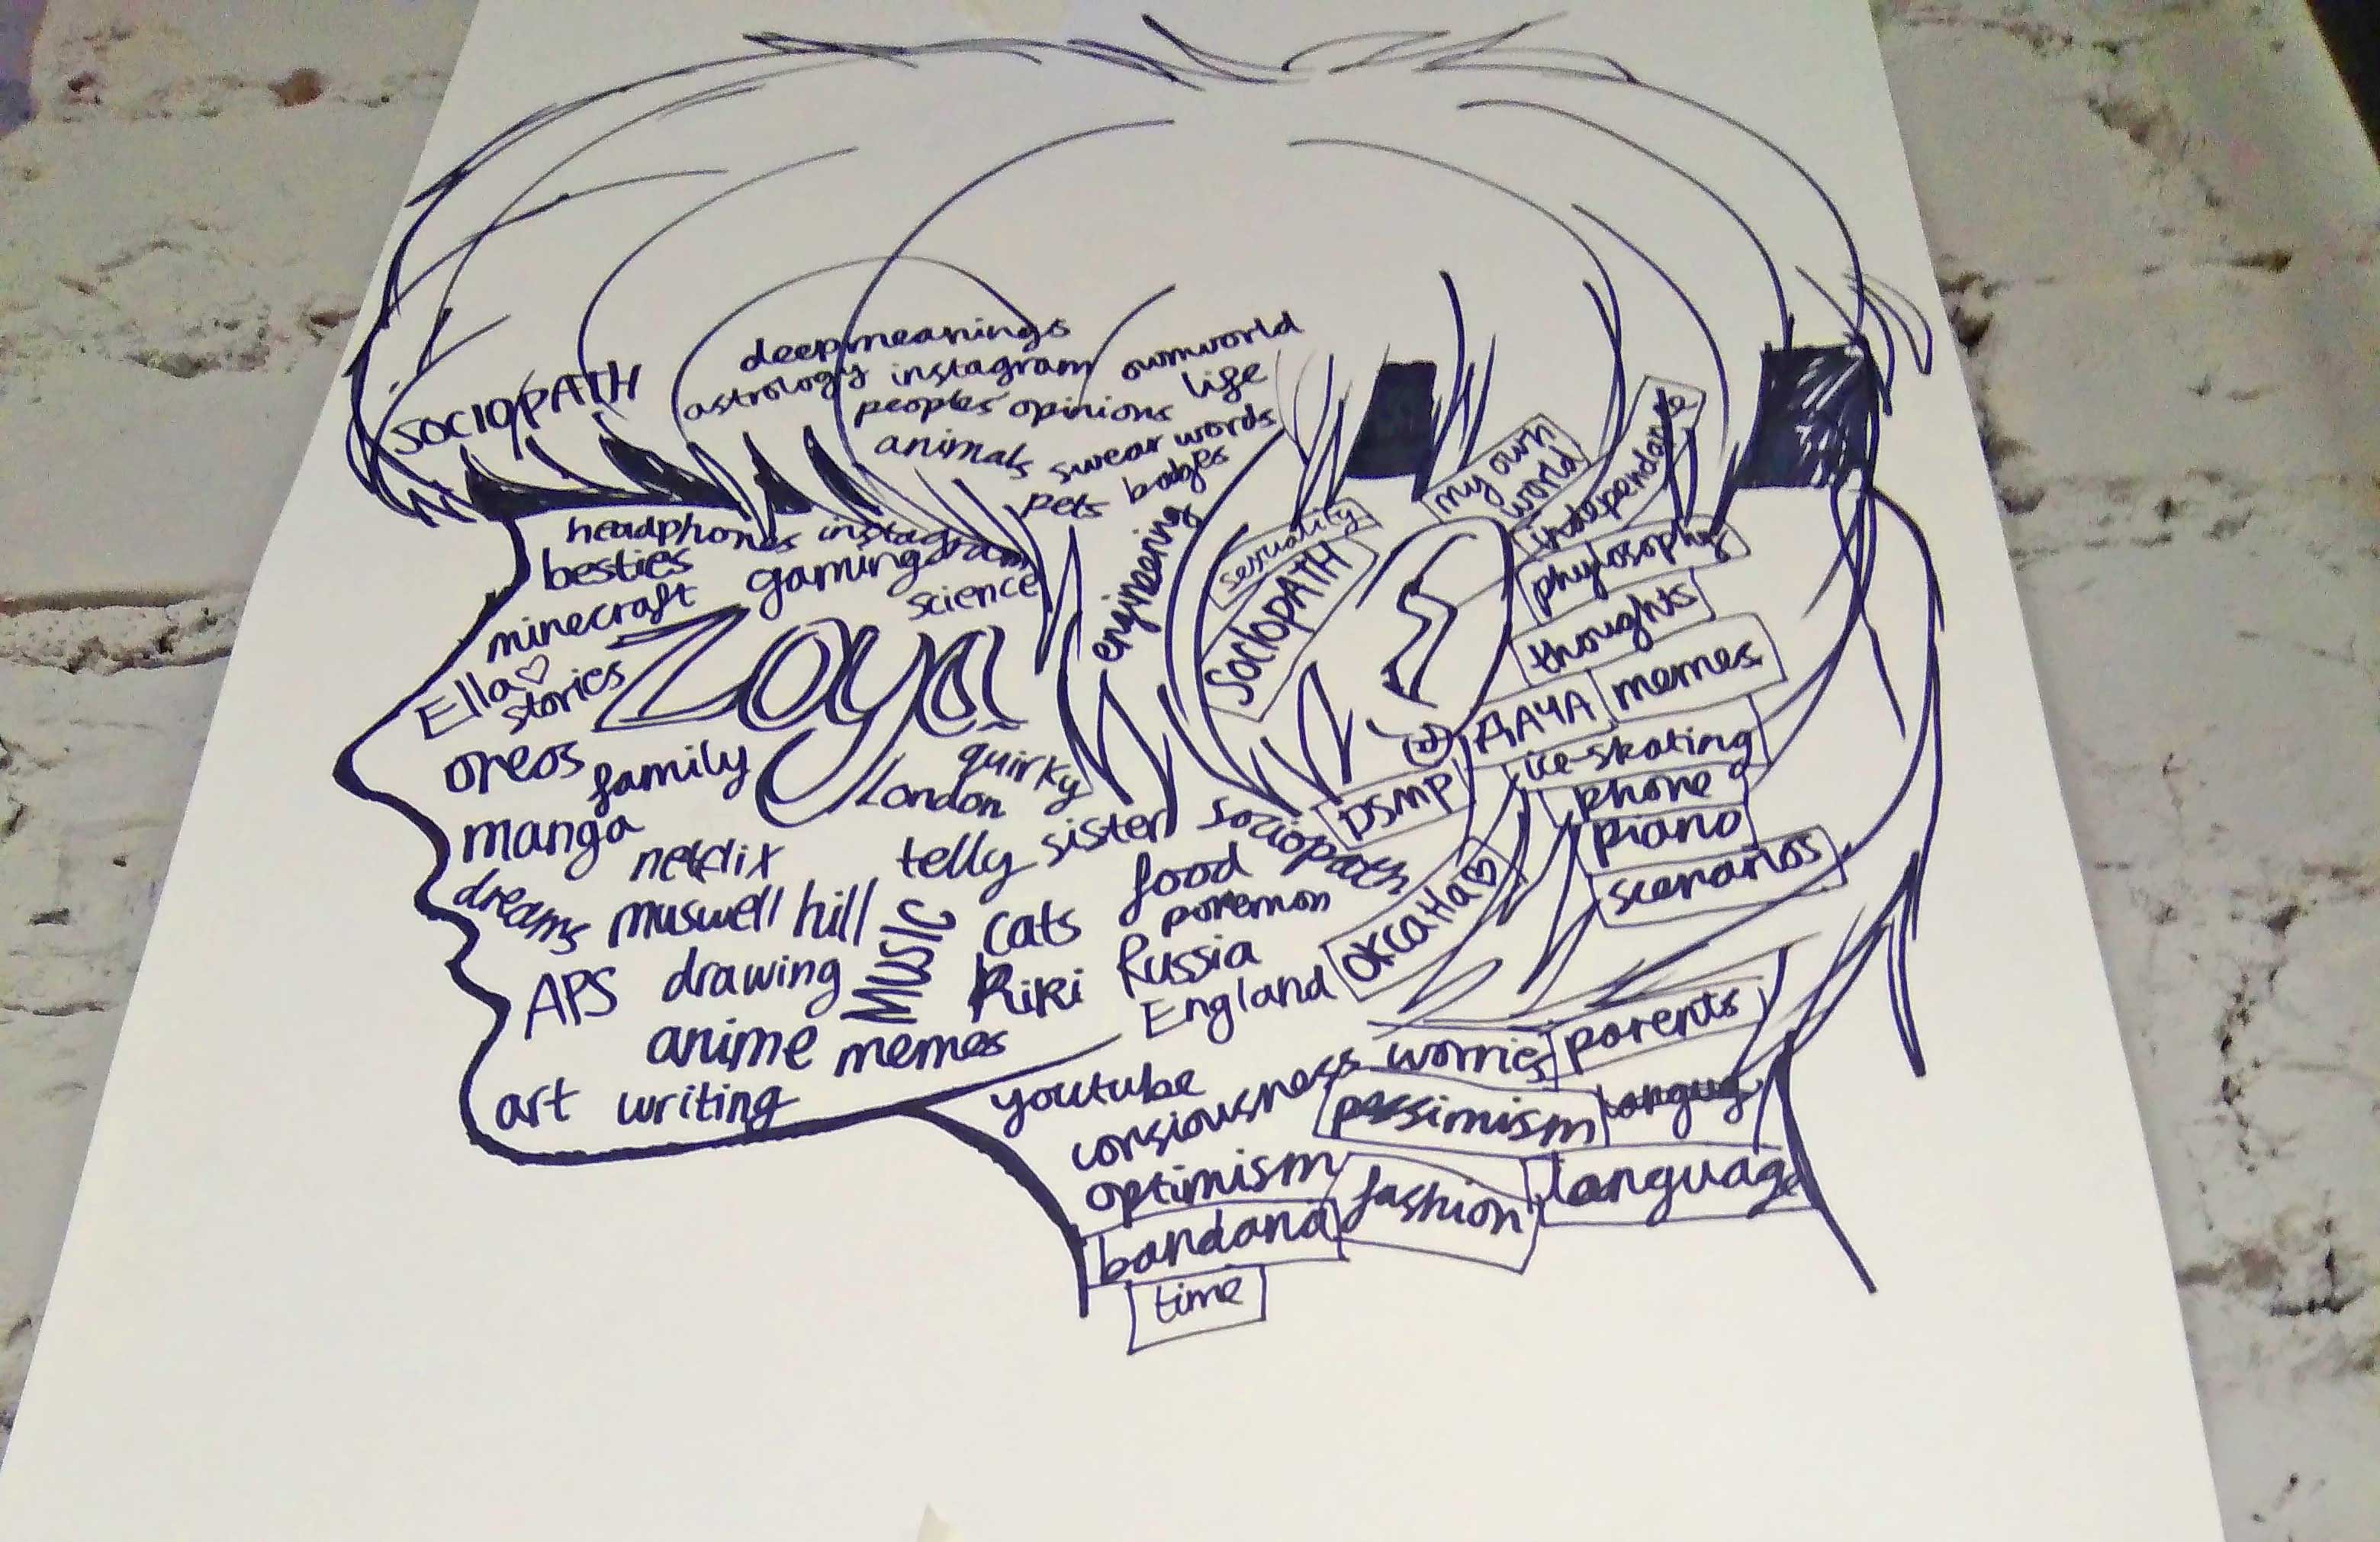 deepmeanings
astrology instagram ownworld
peoples' opinions life
animals swear words
pets badges
SOCIOPATH
headphones instagram
besties gaming
minecraft science
engineering
Ella♡
stories
Zoya
oreos family
quirky
London
manga
netflix
telly sister
sociopath
food
dreams muswell hill
MUSIC
cats pokemon
APS drawing
Riki Russia
England
anime memes
art writing
sexuality
SOCIOPATH
my own
world
independance
phylosophy
thoughts
memes
ice-skating
DSMP
phone
piano
scenarios
youtube
consiousness worries parents
pessimism langug
optimism fashion language
bandana
time